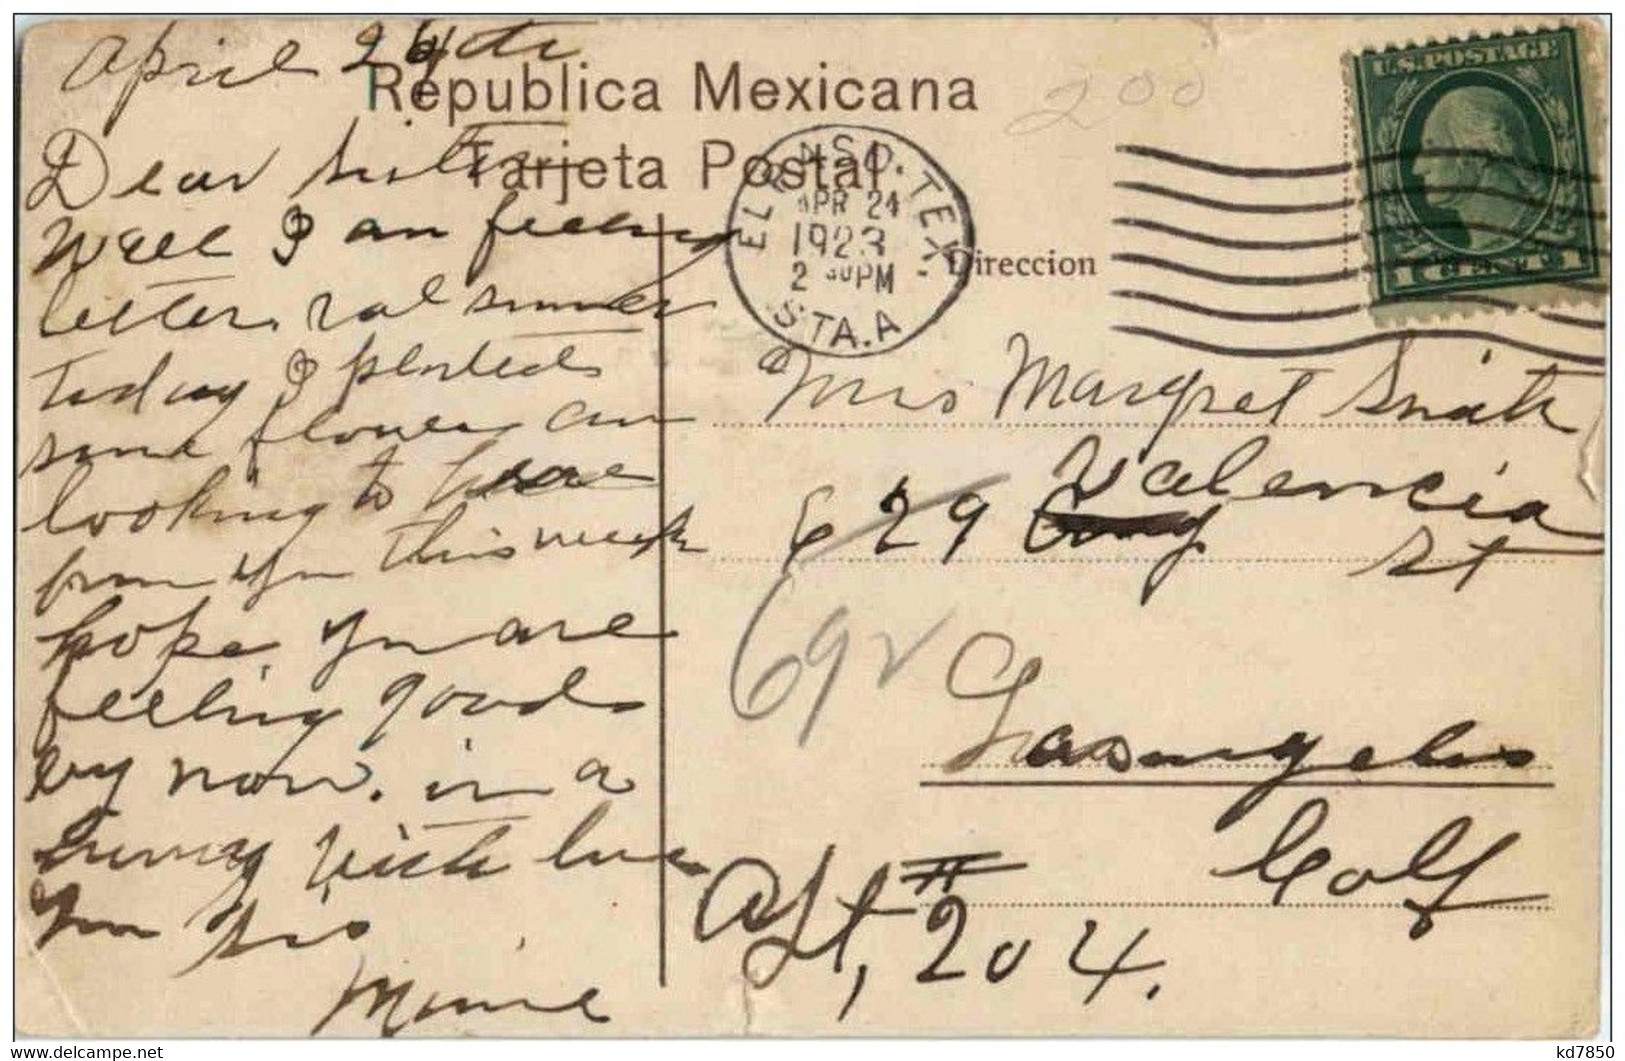 April 24th
Republica Mexicana
Tarjeta Postal
200
U.S. POSTAGE
EL PASO. TEX.
APR 24
1923
2 30PM
STA. A
Direccion
Dear Sister
Well I am feeling
better. real summer
today I planted
some flowers am
looking to hear
from you this week
hope you are
feeling good
by now. in a
hurry with love
your sis
Minnie
Mrs Margret Smith
629 Valencia
St
692
Losangeles
Calf
Apt, # 204.
kd7850